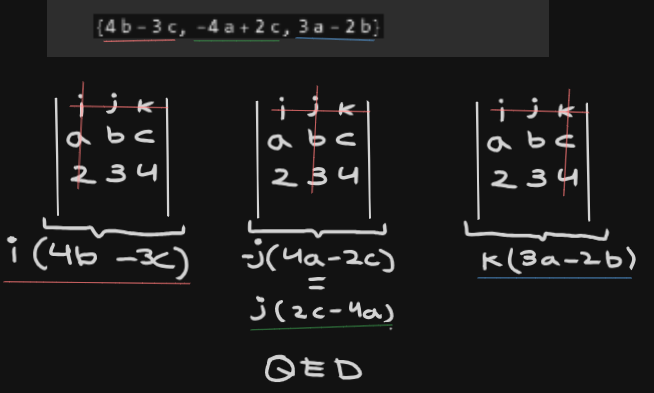 {4 b - 3 c, -4 a + 2 c, 3 a - 2 b}
i j k
a b c
2 3 4
i (4b - 3c)
i j k
a b c
2 3 4
-j(4a-2c)
=
j(2c-4a)
i j k
a b c
2 3 4
k(3a-2b)
QED